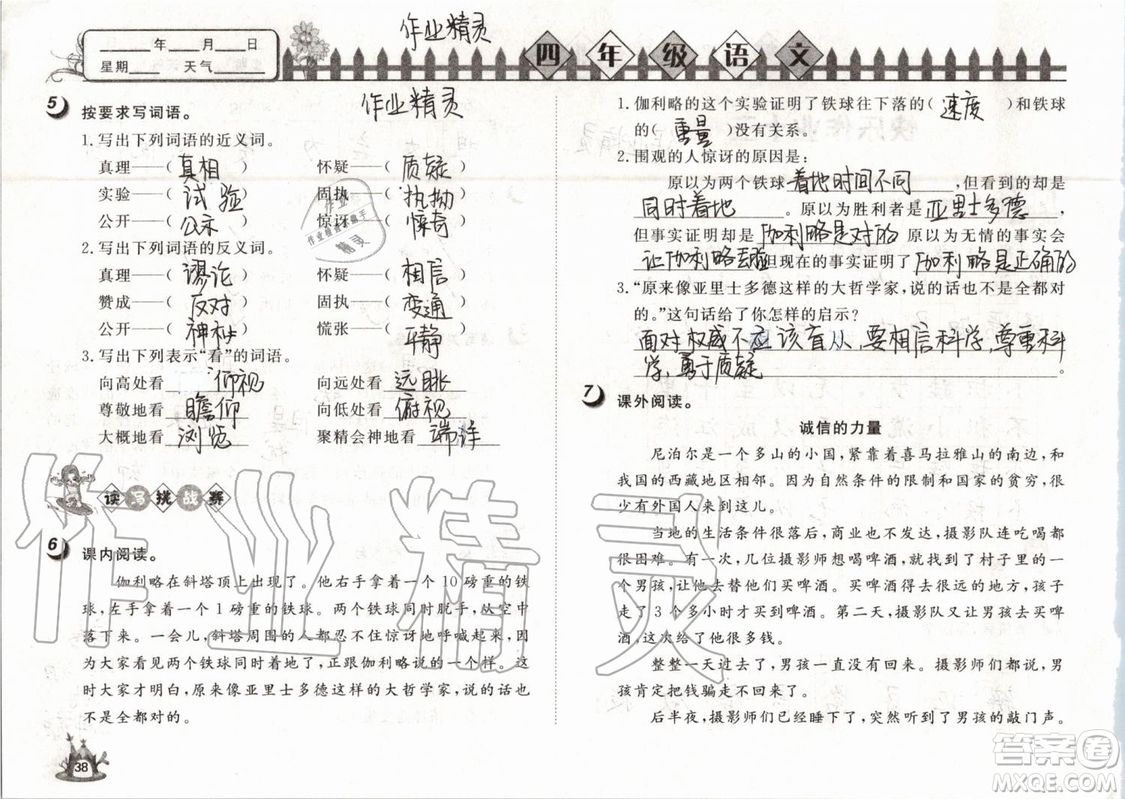 作业精灵
____年____月____日
星期____ 天气____
四年级语文
作业精灵
5 按要求写词语。
1.写出下列词语的近义词。
真理——(真相) 怀疑——(质疑)
实验——(试验) 固执——(执拗)
公开——(公示) 惊讶——(惊奇)
2.写出下列词语的反义词。
真理——(谬论) 怀疑——(相信)
赞成——(反对) 固执——(变通)
公开——(神秘) 慌张——(平静)
3.写出下列表示“看”的词语。
向高处看 仰视 向远处看 远眺
尊敬地看 瞻仰 向低处看 俯视
大概地看 浏览 聚精会神地看 端详
读写挑战赛
6 课内阅读。
伽利略在斜塔顶上出现了。他右手拿着一个 10 磅重的铁
球,左手拿着一个 1 磅重的铁球。两个铁球同时脱手,从空中
落下来。一会儿,斜塔周围的人都忍不住惊讶地呼喊起来,因
为大家看见两个铁球同时着地了,正跟伽利略说的一个样。这
时大家才明白,原来像亚里士多德这样的大哲学家,说的话也
不是全都对的。
38
1.伽利略的这个实验证明了铁球往下落的(速度)和铁球
的(重量)没有关系。
2.围观的人惊讶的原因是:
原以为两个铁球着地时间不同,但看到的却是
同时着地。原以为胜利者是亚里士多德,
但事实证明却是伽利略是对的 原以为无情的事实会
让伽利略丢脸但现在的事实证明了伽利略是正确的
3.“原来像亚里士多德这样的大哲学家,说的话也不是全都对
的。”这句话给了你怎样的启示?
面对权威不应该盲从,要相信科学,尊重科
学,勇于质疑。
7 课外阅读。
诚信的力量
尼泊尔是一个多山的小国,紧靠着喜马拉雅山的南边,和
我国的西藏地区相邻。因为自然条件的限制和国家的贫穷,很
少有外国人来到这儿。
当地的生活条件很落后,商业也不发达,摄影队连吃喝都
很困难。有一次,几位摄影师想喝啤酒,就找到了村子里的一
个男孩,让他去替他们买啤酒。在离村子很远的地方,孩子
走了 3 个多小时才买到啤酒。第二天,摄影队又让男孩去买啤
酒,这次给了他很多钱。
整整一天过去了,男孩一直没有回来。摄影师们都说,男
孩肯定把钱骗走不回来了。
后半夜,摄影师们已经睡下了,突然听到男孩的敲门声。
作业精灵
答案圈
MXQE.COM